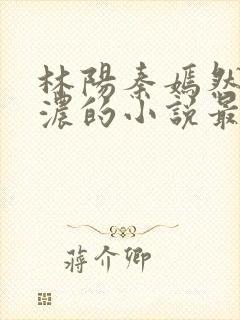 林陽秦嫣然
濃的小說最
蔣介卿